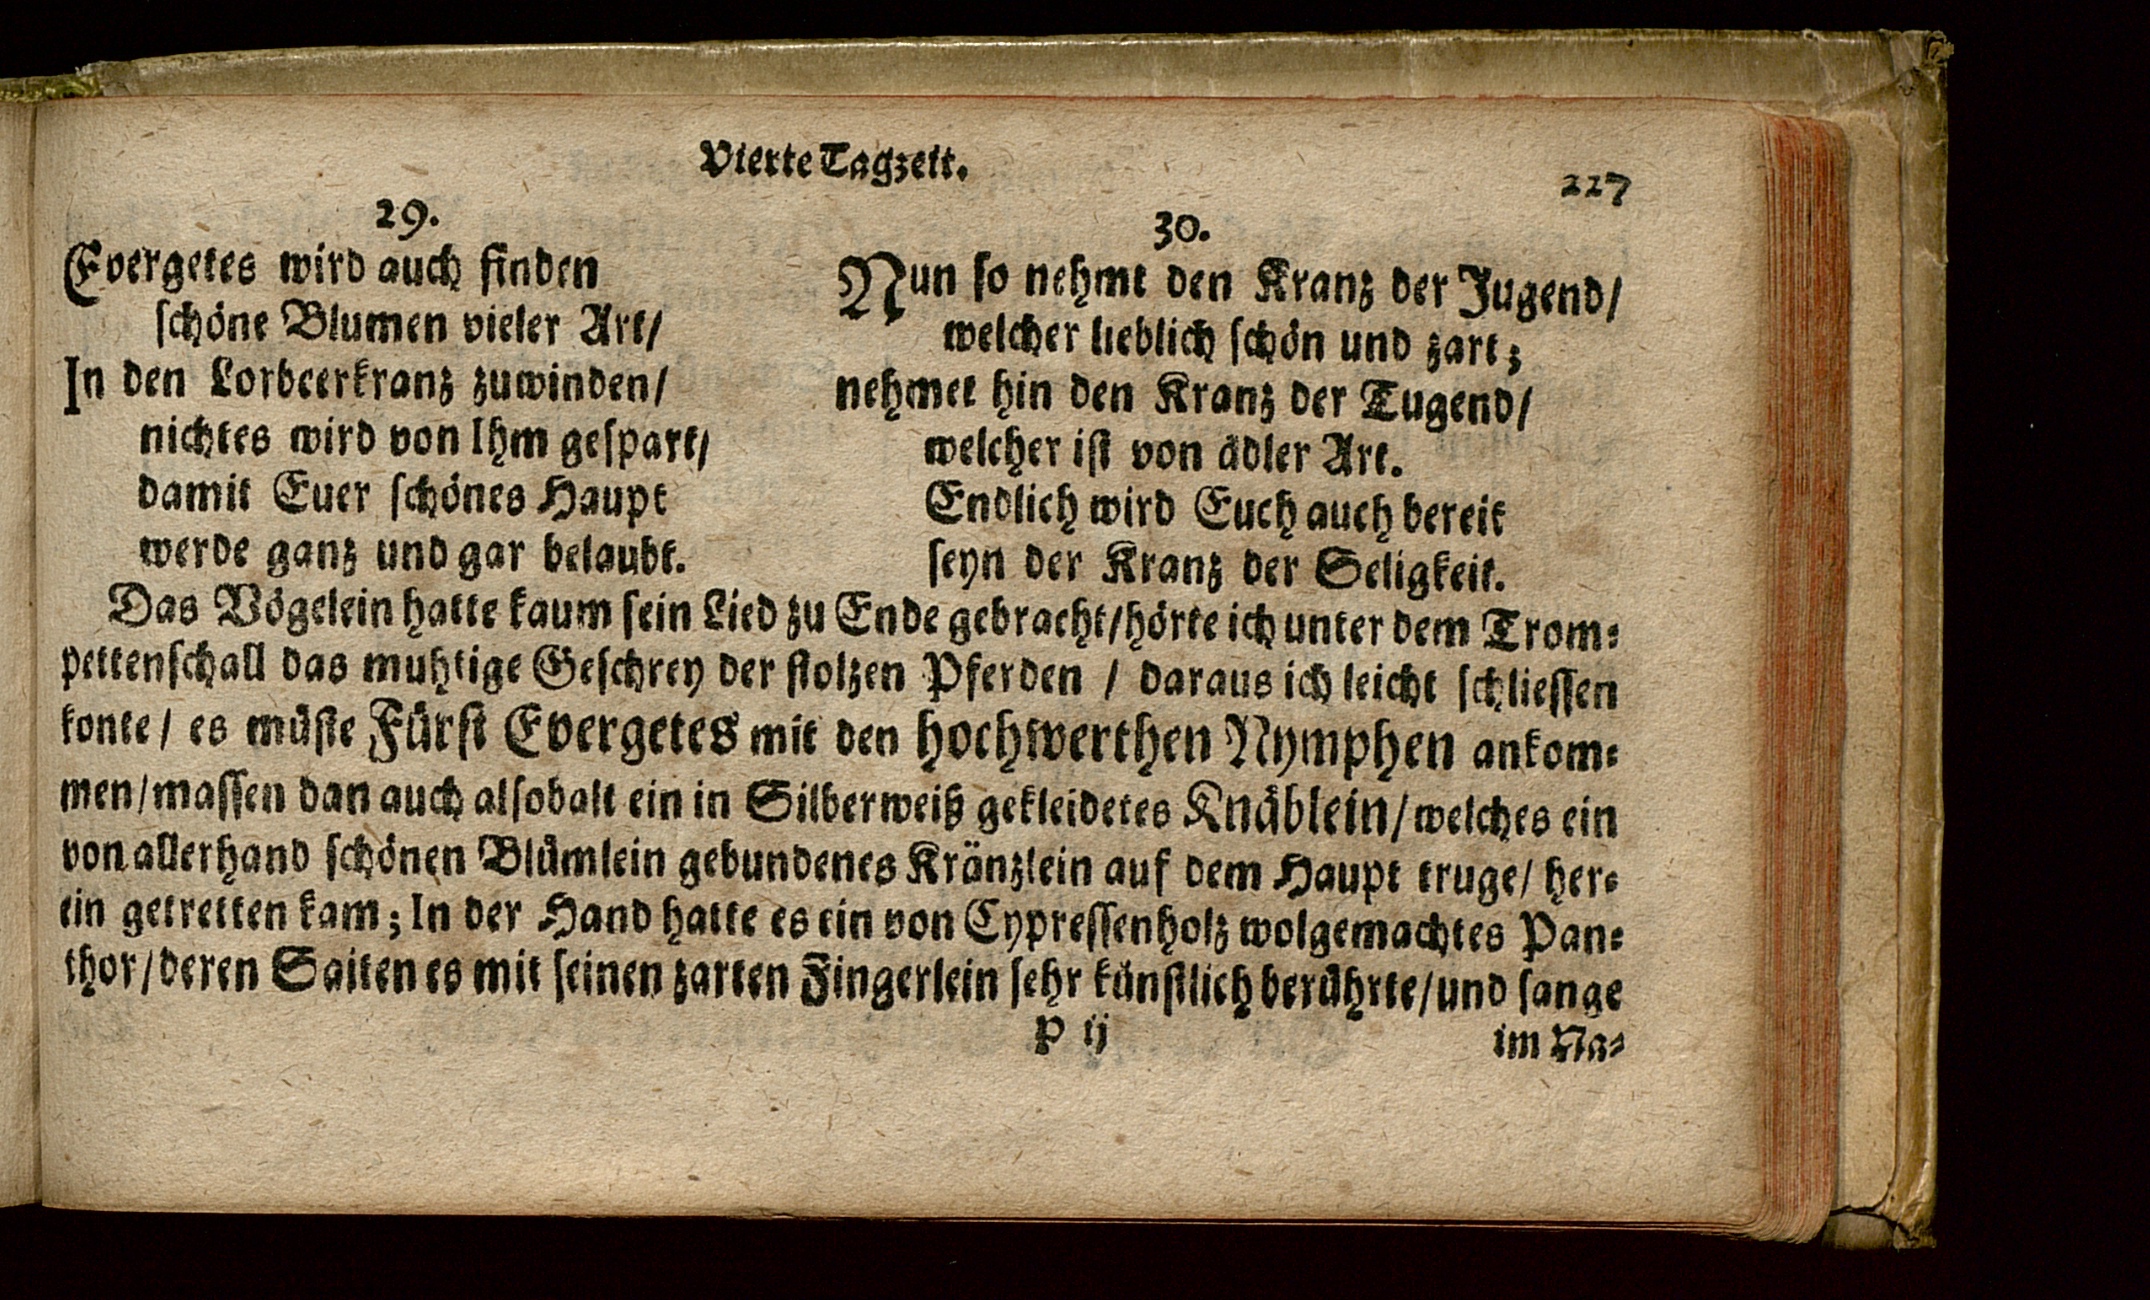 Vierte Tagzeit.
227
29.
Evergetes wird auch finden
schöne Blumen vieler Art/
In den Lorbeerkranz zuwinden/
nichtes wird von Ihm gespart/
damit Euer schönes Haupt
werde ganz und gar belaubt.
30.
Nun so nehmt den Kranz der Jugend/
welcher lieblich schön und zart;
nehmet hin den Kranz der Tugend/
welcher ist von ädler Art.
Endlich wird Euch auch bereit
seyn der Kranz der Seligkeit.
Das Vögelein hatte kaum sein Lied zu Ende gebracht/hörte ich unter dem Trom-
pettenschall das muhtige Geschrey der stolzen Pferden / daraus ich leicht schliessen
konte/ es müste Fürst Evergetes mit den hochwerthen Nymphen ankom-
men/massen dan auch alsobalt ein in Silberweiß gekleidetes Knäblein/welches ein
von allerhand schönen Blümlein gebundenes Kränzlein auf dem Haupt truge/ her-
ein getretten kam; In der Hand hatte es ein von Cypressenholz wolgemachtes Pan-
thor/deren Saiten es mit seinen zarten Fingerlein sehr künstlich berührte/und sange
P ij
im Na-